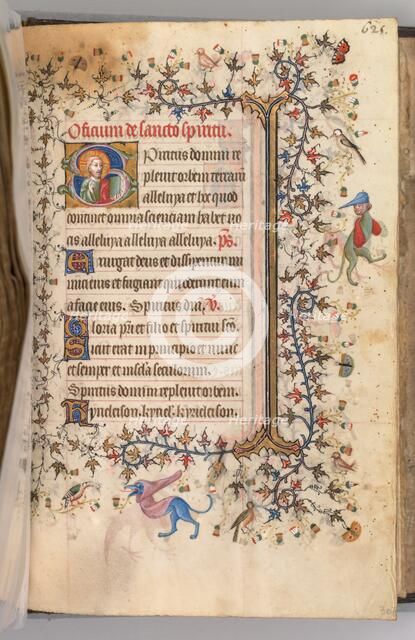 625.
Officium de sancto spiritu.
Spiritus domini re
pleuit orbem terrarum
alleluya et hoc quod
continet omnia scienciam habet uo
cis alleluya alleluya alleluya. ps
Exurgat deus et dissipentur ini
mici eius et fugiant qui oderunt eum
a facie eius. Spiritus dni. V.
Gloria pri et filio et spiritui sco
Sicut erat in principio et nunc
et semper et in secula seculorum.
Spiritus domini repleuit orbem.
Kyrieleison. kyriel. kyrieleison.
heritage